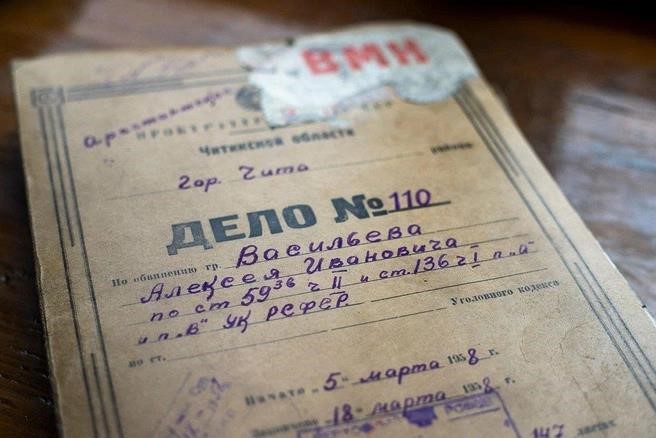 ВМН
Арестантское
ПРОКУРАТУРА
Читинской области
гор. Чита района
ДЕЛО № 110
По обвинению гр. Васильева
Алексея Ивановича
по ст 59³⁶ ч II и ст. 136 ч I п „а"
и п. „в" УК РСФСР.
по ст. Уголовного кодекса
Начато „5" марта 1958 г.
„18" марта 1958 г.
147 листах